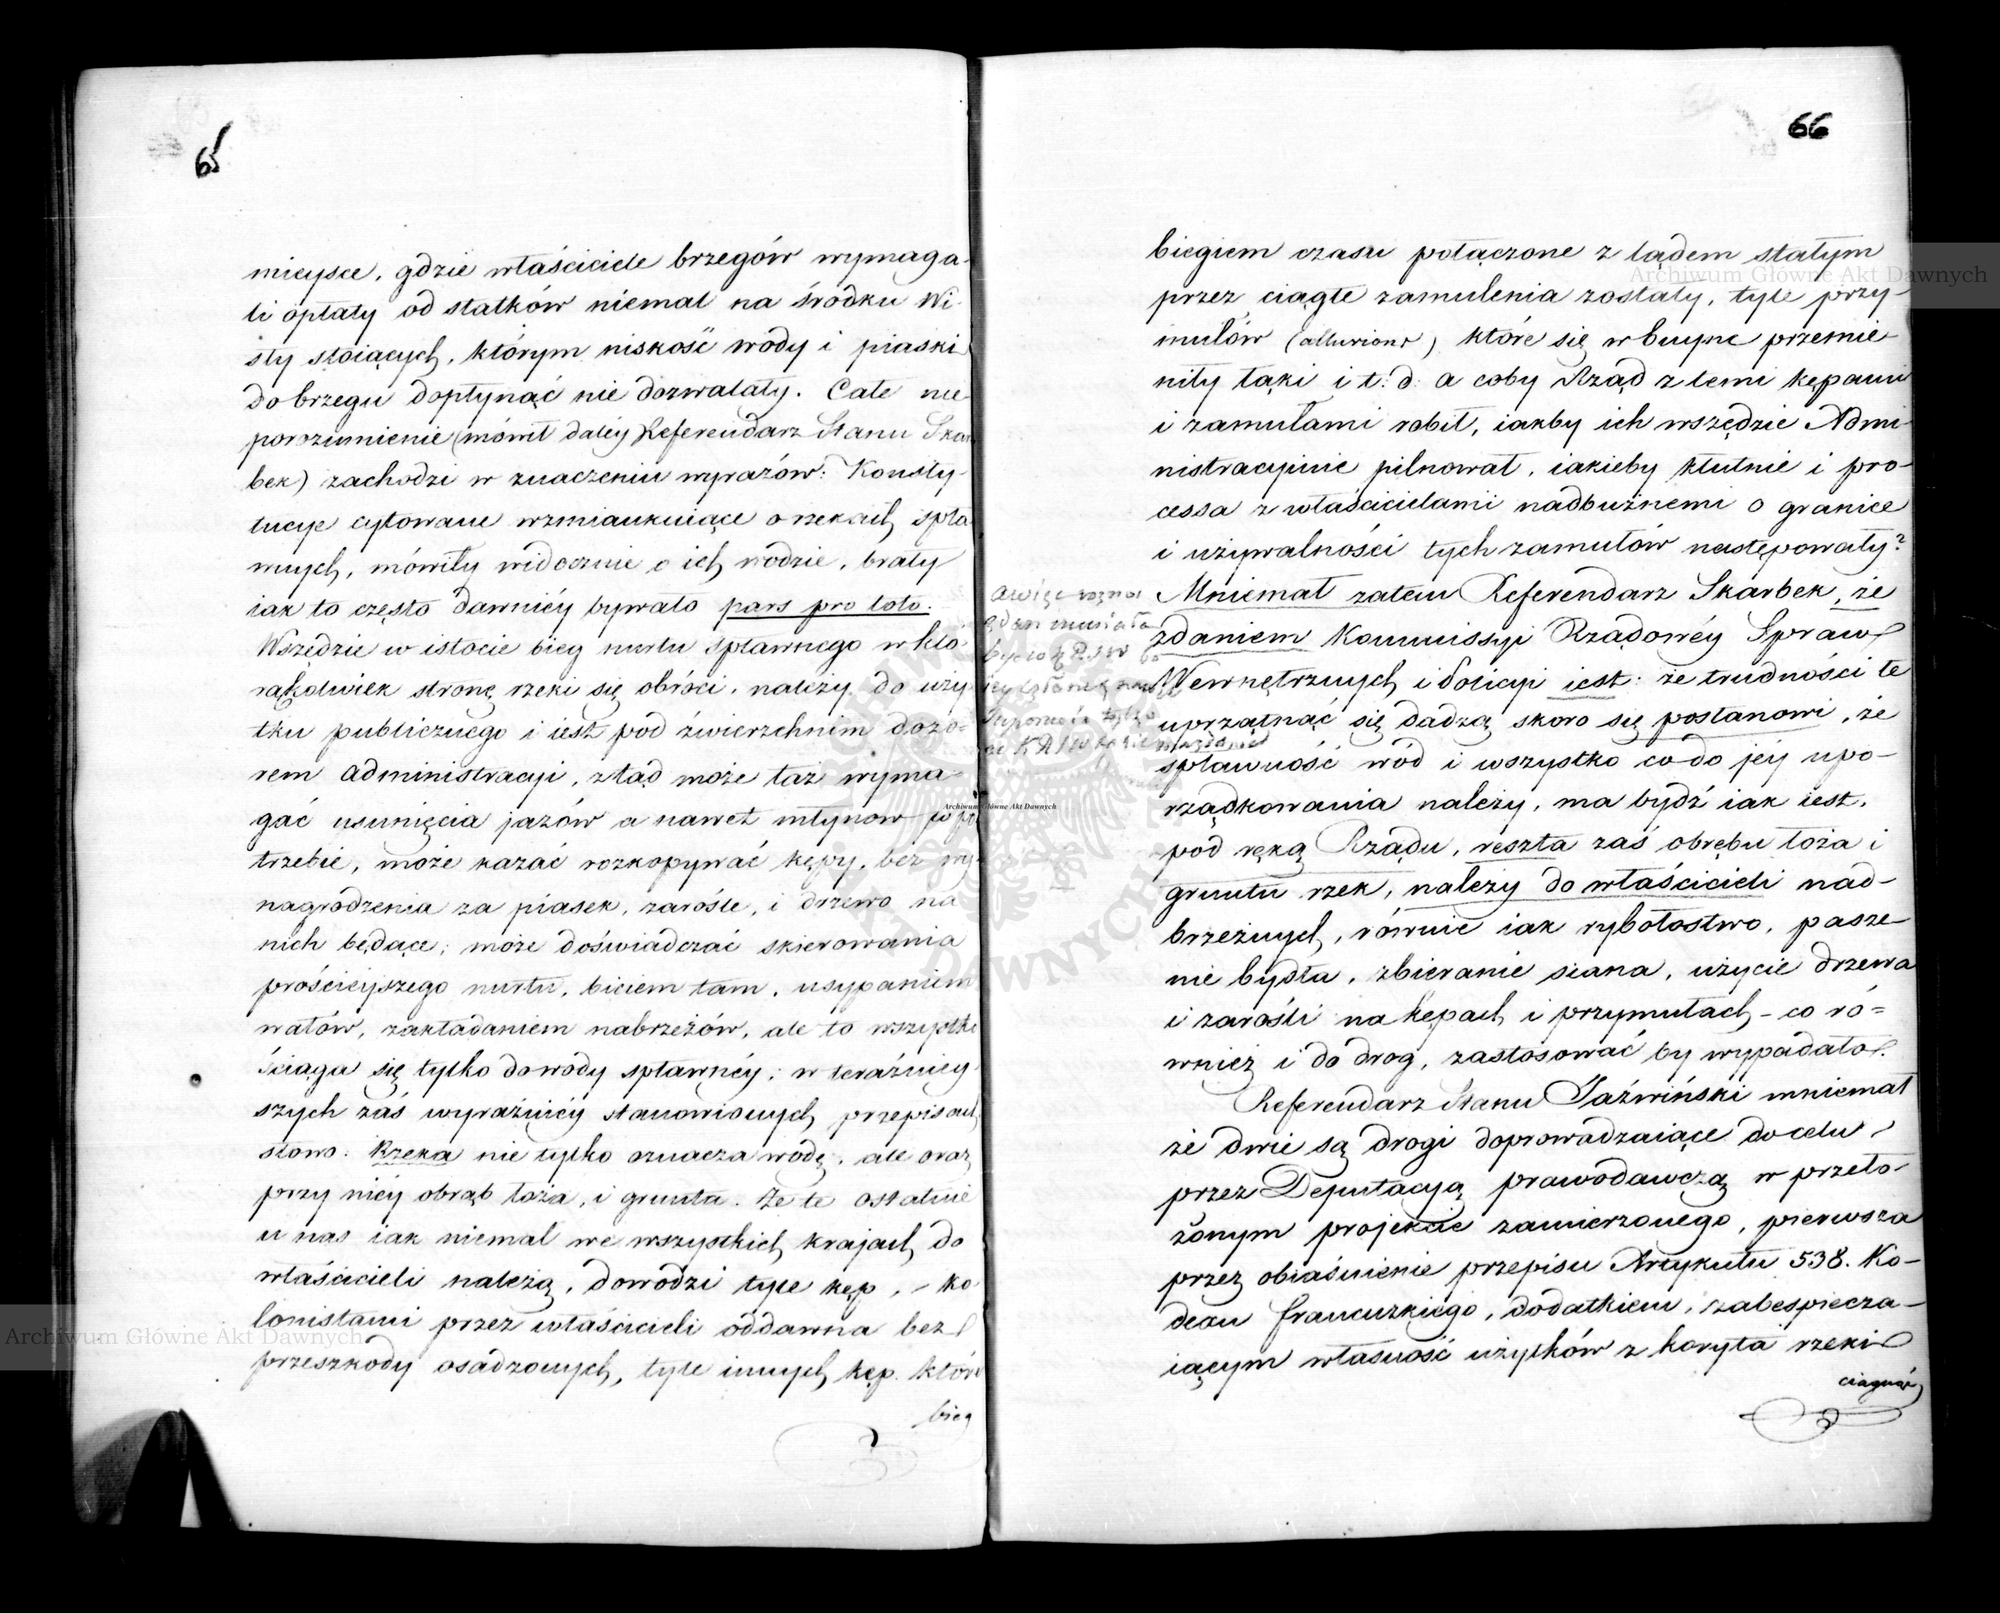 65
mieysce, gdzie właściciele brzegów wymaga-
li opłaty od statków niemal na środku Wi-
sły stoiących, którym niskość wody i piaski
do brzegu dopłynąć nie dozwalały. Całe nie
porozumienie (mówił daléy Referendarz Stanu Skar
bek) zachodzi w znaczeniu wyrazów: Konsty-
tucye cytowane wzmiankuiące o rzekach spła
wnych, mówiły widocznie o ich wodzie, brały
iak to często dawniéy bywało pars pro toto.
Wszędzie w istocie bieg nurtu spławnego w któ-
rąkolwiek stronę rzeki się obróci, należy do uży-
tku publicznego i iest pod zwierzchnim dozo-
rem Administracyi, ztąd może taż wyma-
gać usunięcia jazów a nawet młynów po po
trzebie, może kazać rozkopywać kępy, bez wy-
nagrodzenia za piasek, zarośle, i drzewo na
nich będące; może doświadczać skierowania
prościeyszego nurtu, biciem tam, usypaniem
wałów, zakładaniem nabrzeżów, ale to wszystko
ściąga się tylko do wody spławnéy; w teraźniey-
szych zaś wyraźniéy stanowiących przepisach
słowo. Rzeka nie tylko oznacza wodę, ale oraz
przy niéy obrąb łoża, i gruntu. Że te ostatnie
u nas iak niemal we wszystkich krajach do
właścicieli należą, dowodzi tyle kęp, - ko
lonistami przez właścicieli oddawna bez
przeszkody osadzonych, tyle innych kęp. które
bieg
66
biegiem czasu połączone z lądem stałym
przez ciągłe zamulenia zostały, tyle przy-
mułów (alluvions) które się w buyne przemie-
niły łąki i t: d: a coby Rząd z temi kępami
i zamułami robił, iakby ich wszędzie Admi-
nistracyinie pilnował, iakieby kłutnie i pro-
cessa z właścicielami nadbużnemi o granice
i używalności tych zamułów następowały?
Mniemał zatem Referendarz Skarbek, że
zdaniem Kommissyi Rządowéy Spraw
Wewnętrznych i Policyi iest: że trudności te
uprzątnąć się dadzą skoro się postanowi, że
spławność wód i wszystko co do jéy upo-
rządkowania należy, ma bydź iak iest,
pod ręką Rządu, reszta zaś obrębu łoża i
gruntu rzek, należy do właścicieli nad-
brzeżnych, równie iak rybołostwo, pasze-
nie bydła, zbieranie siana, użycie drzewa
i zarośli na kępach i przymułach - co ró-
wnież i do drog, zastosować by wypadało.
Referendarz Stanu Jaźwiński mniemał
że dwie są drogi doprowadzaiące do celu
przez Deputacyą prawodawczą w przeło-
żonym projekcie zamierzonego, pierwsza
przez obiaśnienie przepisu Artykułu 538. Ko-
dexu francuzkiego, dodatkiem, zabespiecza-
iącym własność użytków z koryta rzeki
ciągnąć
Archiwum Główne Akt Dawnych
Archiwum Główne Akt Dawnych
Archiwum Główne Akt Dawnych